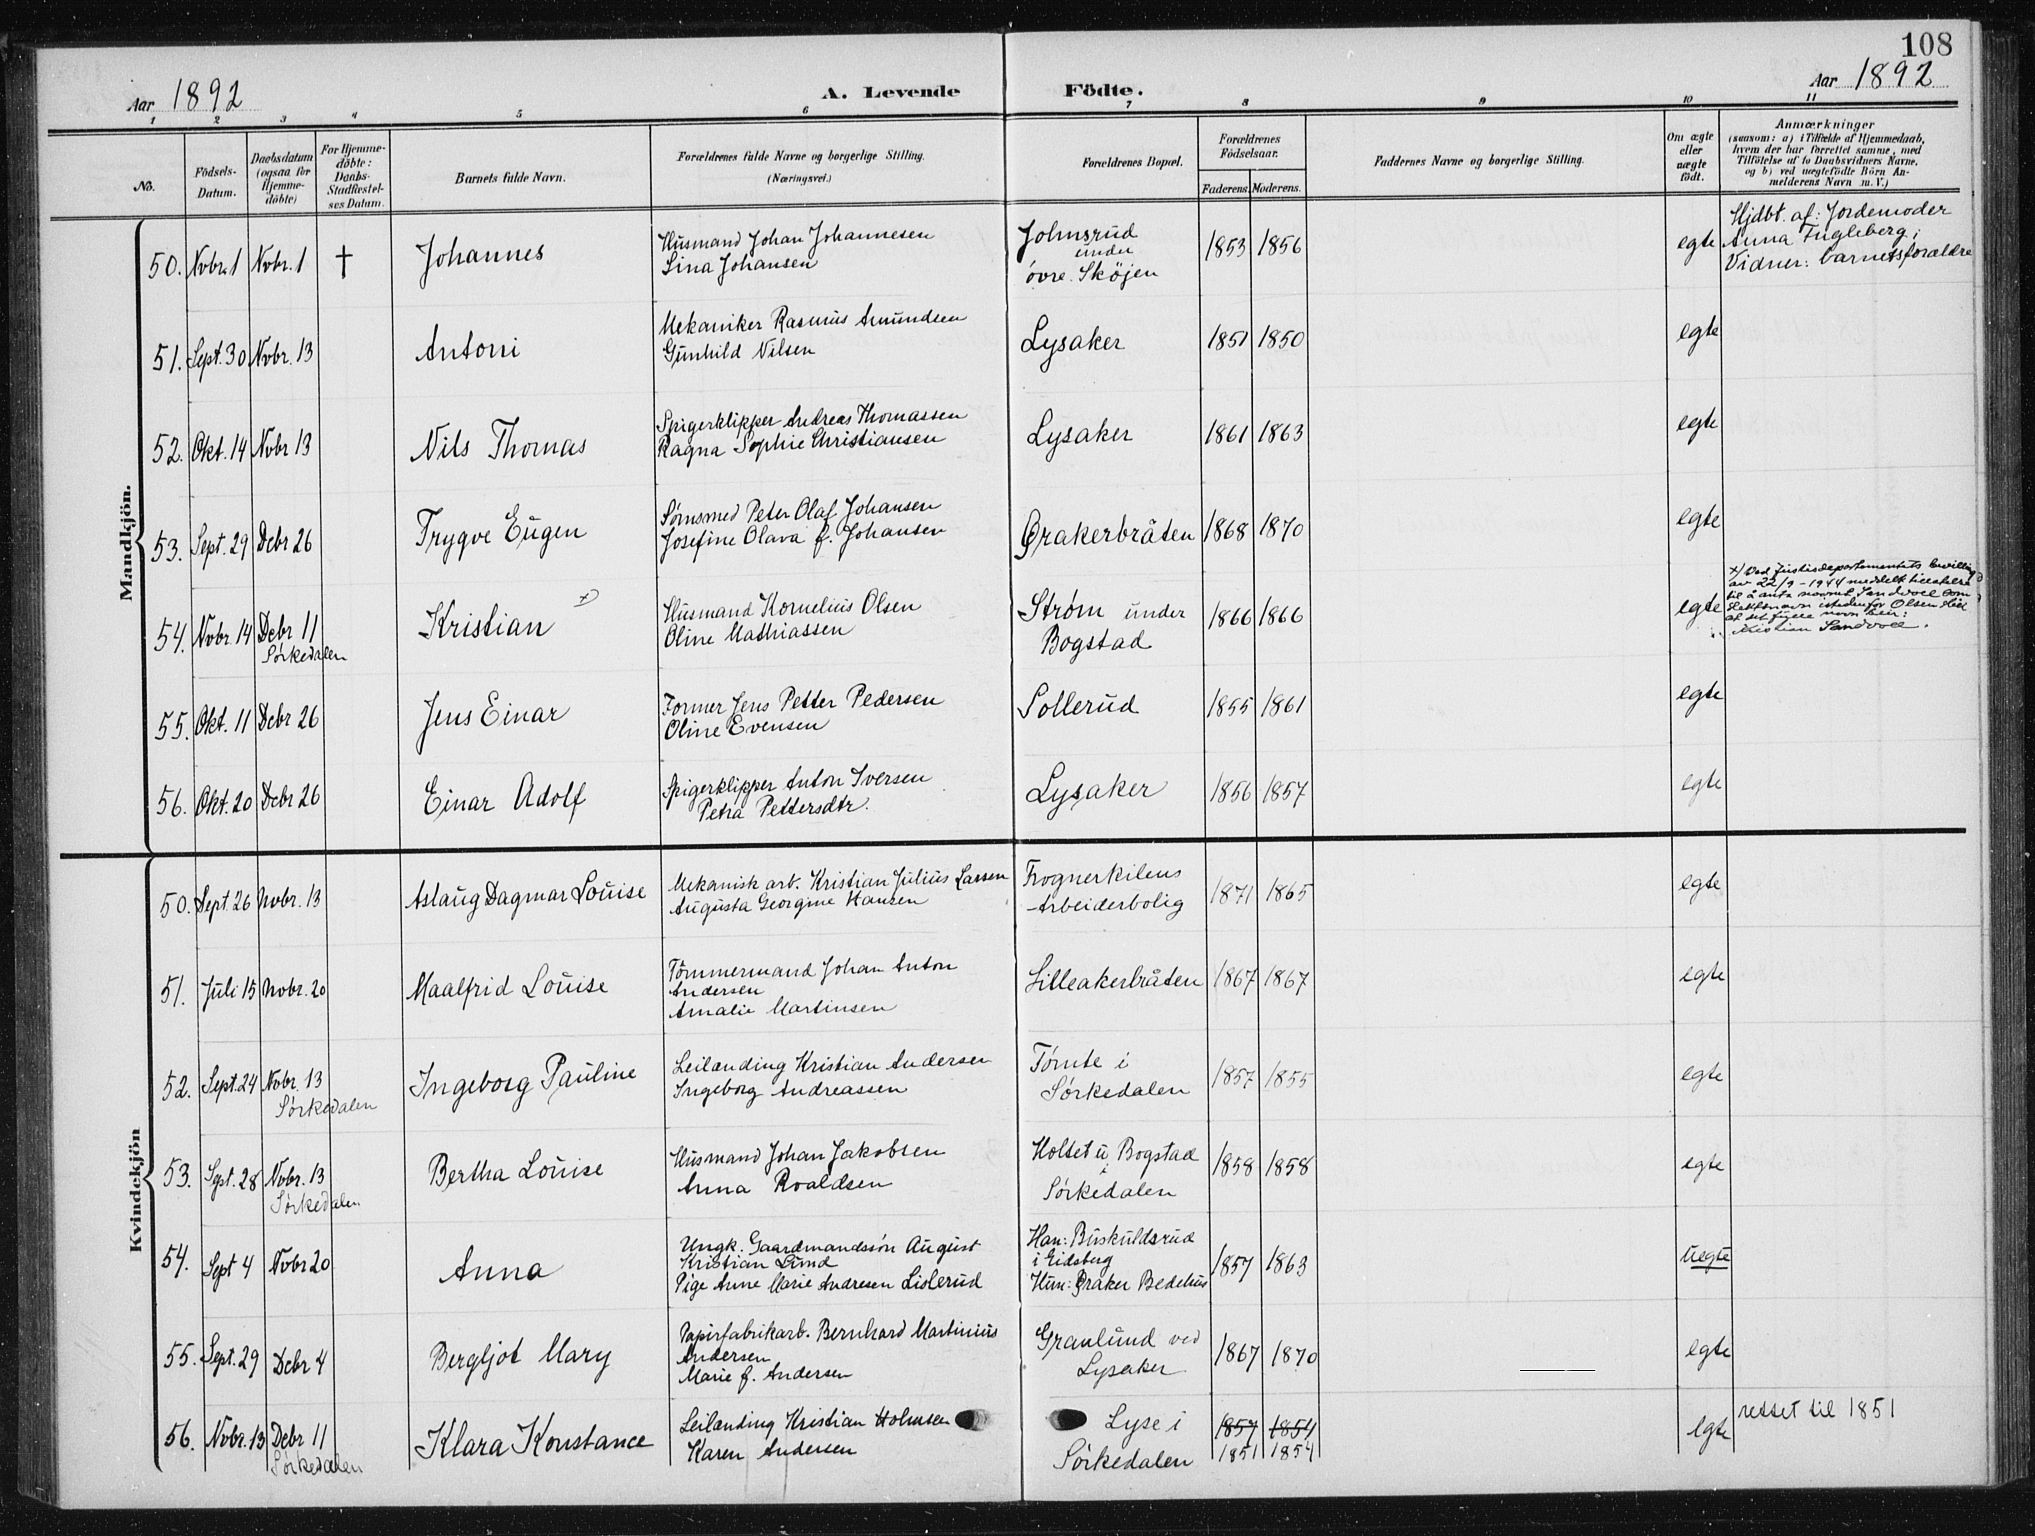 108
Aar 1892
A. Levende Födte.
Aar 1892
1 2 3 4 5 6 7 8 9 10 11
No.
Födsels-
Datum.
Daabsdatum
(ogsaa for
Hjemme-
döbte)
For Hjemme-
döbte:
Daabs-
Stadfæstel-
ses Datum.
Barnets fulde Navn.
Forældrenes fulde Navne og borgerlige Stilling.
(Næringsvei.)
Forældrenes Bopæl.
Forældrenes
Födselsaar.
Faderens. Moderens.
Faddernes Navne og borgerlige Stilling.
Om ægte
eller
uægte
födt.
Anmærkninger
(saasom: a) i Tilfælde af Hjemmedaab,
hvem der har forrettet samme, med
Tilföielse af to Daabsvidners Navne,
og b) ved uægtefödte Börn An-
melderens Navn m. V.)
Mandkjön.
50. Novbr. 1 Novbr. 1 † Johannes
Husmand Johan Johannesen
Lina Johansen
Jolmsrud
under
övre. Sköjen
1853 1856 egte
Hjdbt. af: Jordemoder
Anna Fugleberg;
Vidner: barnetsforældre
51. Sept. 30 Novbr. 13 Antoni
Mekaniker Rasmus Amundsen
Gunhild Nilsen
Lysaker 1851 1850 egte
52. Okt. 14 Novbr 13 Nils Thomas
Spigerklipper Andreas Thomassen
Ragna Sophie Christiansen
Lysaker 1861 1863 egte
53. Sept. 29 Debr 26 Trygve Eugen
Sömsmed Peter Olaf Johansen
Josefine Olava f. Johansen
Örakerbråten 1868 1870 egte
54. Novbr. 14 Debr 11
Sörkedalen
Kristian x)
Husmand Kornelius Olsen
Oline Mathiassen
Ström under
Bogstad
1866 1866 egte
x) Ved Justisdepartementets bevilling
av 22/9-1944 meddelt tillatelse
til å anta navnet Sandvoll som
slektsnavn istedenfor Olsen slik
at det fulle navn blir:
Kristian Sandvoll.
55. Okt. 11 Debr 26 Jens Einar
Former Jens Petter Pedersen
Oline Evensen
Sollerud 1855 1861 egte
56. Okt. 20 Debr 26 Einar Adolf
Spigerklipper Anton Iversen
Petra Pettersdtr.
Lysaker 1856 1857 egte
Kvindekjön
50. Sept. 26 Novbr. 13 Aslaug Dagmar Louise
Mekanisk arb. Kristian Julius Larsen
Augusta Georgine Hansen
Frognerkilens
Arbeiderbolig
1871 1865 egte
51. Juli 15 Novbr. 20 Maalfrid Louise
Tömmermand Johan Anton
Andersen
Amalie Martinsen
Lilleakerbråten 1867 1867 egte
52. Sept. 24 Novbr. 13
Sörkedalen
Ingeborg Pauline
Leilanding Kristian Andersen
Ingeborg Andreassen
Tömte i
Sörkedalen
1857 1855 egte
53. Sept. 28 Novbr. 13
Sörkedalen
Bertha Louise
Husmand Johan Jakobsen
Anna Roaldsen
Holtet u Bogstad
i
Sörkedalen
1858 1858 egte
54. Sept 4 Novbr 20 Anna
Ungk. Gaardmandssön August
Kristian Lund
Pige Anne Marie Andresen Lislerud
Han: Buskuldsrud
i Eidsberg
Hun: Öraker Bedehus
1857 1863 uegte
55. Sept. 29 Debr 4 Bergljot Mary
Papirfabrikarb. Bernhard Martinius
Andersen
Marie f. Andersen
Granlund ved
Lysaker
1867 1870 egte
56. Novbr. 13 Debr 11
Sörkedalen
Klara Konstance
Leilanding Kristian Holmsen
Karen Andersen
Lyse i
Sörkedalen
1857 1854
1851 1854
egte
rettet til 1851